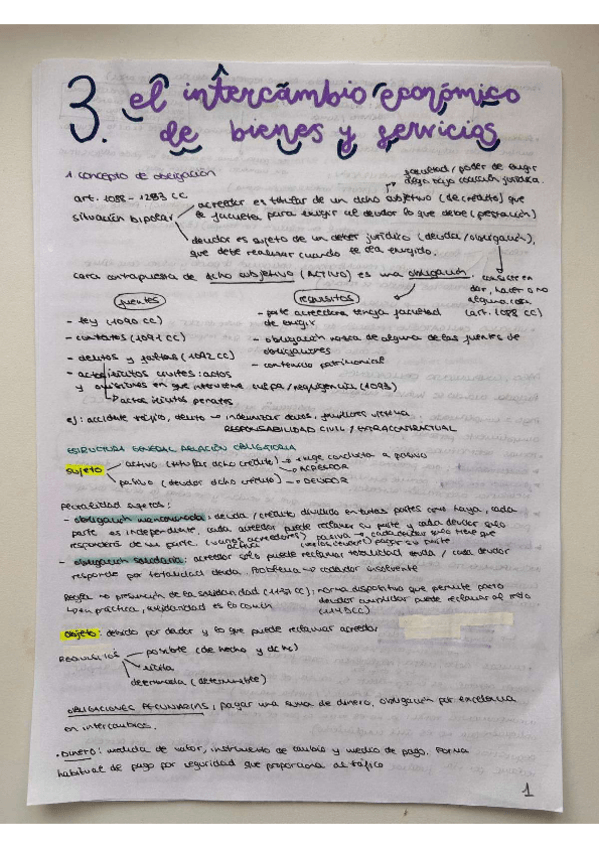 3. el intercambio económico
de bienes y servicios
1. Concepto de obligación
facultad / poder de exigir
algo bajo coacción jurídica.
art. 1088 - 1283 CC
situación bipolar
acreedor es titular de un dcho subjetivo (de crédito) que
le faculta para exigir al deudor lo que debe (prestación)
deudor es sujeto de un deber jurídico (deuda/obligación),
que debe realizar cuando le sea exigido.
cara contrapuesta de dcho subjetivo (ACTIVO) es una obligación.
consiste en
dar, hacer o no
alguna cosa
(art. 1088 CC)
fuentes
- ley (1090 CC)
- contratos (1091 CC)
- delitos y faltas (1092 CC)
- actos ilícitos civiles: actos
y omisiones en que interviene culpa/negligencia (1093)
actos ilícitos penales
requisitos
- parte acreedora tenga facultad
de exigir
- obligación nazca de alguna de las fuentes de
obligaciones
- contenido patrimonial
ej: accidente tráfico, delito → indemnizar daños,
RESPONSABILIDAD CIVIL / EXTRACONTRACTUAL
ESTRUCTURA GENERAL RELACIÓN OBLIGATORIA
sujeto
activo (titular dcho crédito) → exige conducta a pasivo
→ ACREEDOR
pasivo (deudor dcho crédito) → DEUDOR
Pluralidad sujetos:
- obligación mancomunada: deuda / crédito dividido en tantas partes como haya, cada
parte es independiente, cada acreedor puede reclamar su parte y cada deudor solo
responderá de un parte. (varios acreedores) pasiva → cada deudor solo tiene que
activa pagar su parte
- obligación solidaria: acreedor solo puede reclamar totalidad deuda / cada deudor
responde por totalidad deuda. Problema → codeudor insolvente
Regla → presunción de la solidaridad (1137 CC); norma dispositiva que permite pacto
en práctica, solidaridad es lo común
deudor cumplidor puede reclamar al resto
objeto: debido por deudor y lo que puede reclamar acreedor
REQUISITOS
posible (de hecho y dcho)
lícita
determinada (determinable)
OBLIGACIONES PECUNIARIAS: pagar una suma de dinero. Obligación por excelencia
en intercambios.
• DINERO: medida de valor, instrumento de cambio y medio de pago. Forma
habitual de pago por seguridad que proporciona al tráfico
1